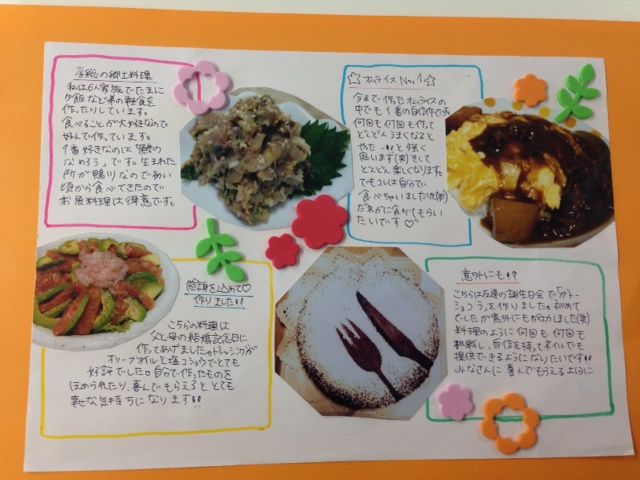 房総の郷土料理
私は6人家族でたまに
夕飯など家の軽食を
作ったりしています。
食べることが大好きなので
好んで作っています。
1番好きなのは「鯵の
なめろう」です。生まれた
所が鴨川なので幼い
頃から食べてきたので
お魚料理は得意です。
☆オムライスNo.1☆
今まで作ったオムライスの
中でも1番の自信作です
何回も何回も作って
どんどんうまくなると
やた〜!!と強く
思います(笑)そして
どんどん楽しくなります。
でもコレは自分で
食べちゃいました(笑)
だれかに食べてもらい
たいです♡
感謝を込めて♡
作りました!!
こちらの料理は
父と母の結婚記念日に
作ってあげました。ドレッシングが
オリーブオイルと塩コショウでとても
好評でした。自分で作ったものを
ほめられたり、喜んでもらえるととても
幸せな気持ちになります!!
意外にも!?
こちらは友達の誕生日会で「ガトー
ショコラ」を作りました。初めて
でしたが意外にもでがけました(笑)
料理のように何回も何回も
挑戦し、自信を持って
提供できるようになりたいです!!
みなさんに喜んでもらえるように